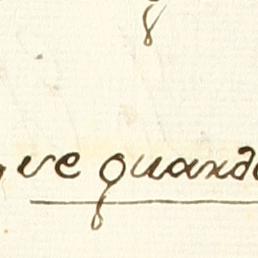 ve quando